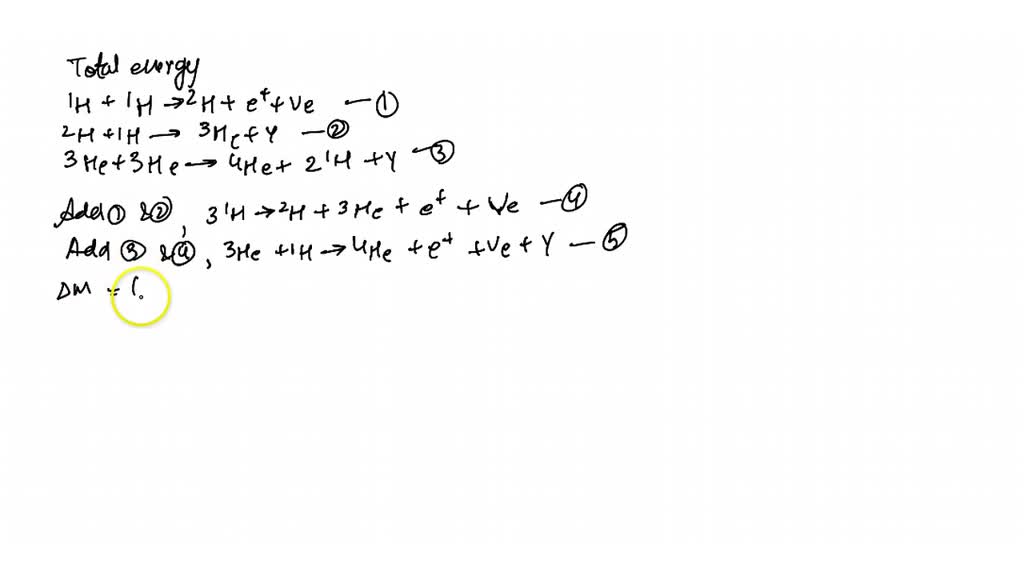 Total energy
¹H + ¹H → ²H + e⁺ + νe — ①
²H + ¹H → ³He + γ — ②
³He + ³He → ⁴He + 2¹H + γ — ③
Add ① & ②, 3¹H → ²H + ³He + e⁺ + νe — ④
Add ③ & ④, ³He + ¹H → ⁴He + e⁺ + νe + γ — ⑤
ΔM = (